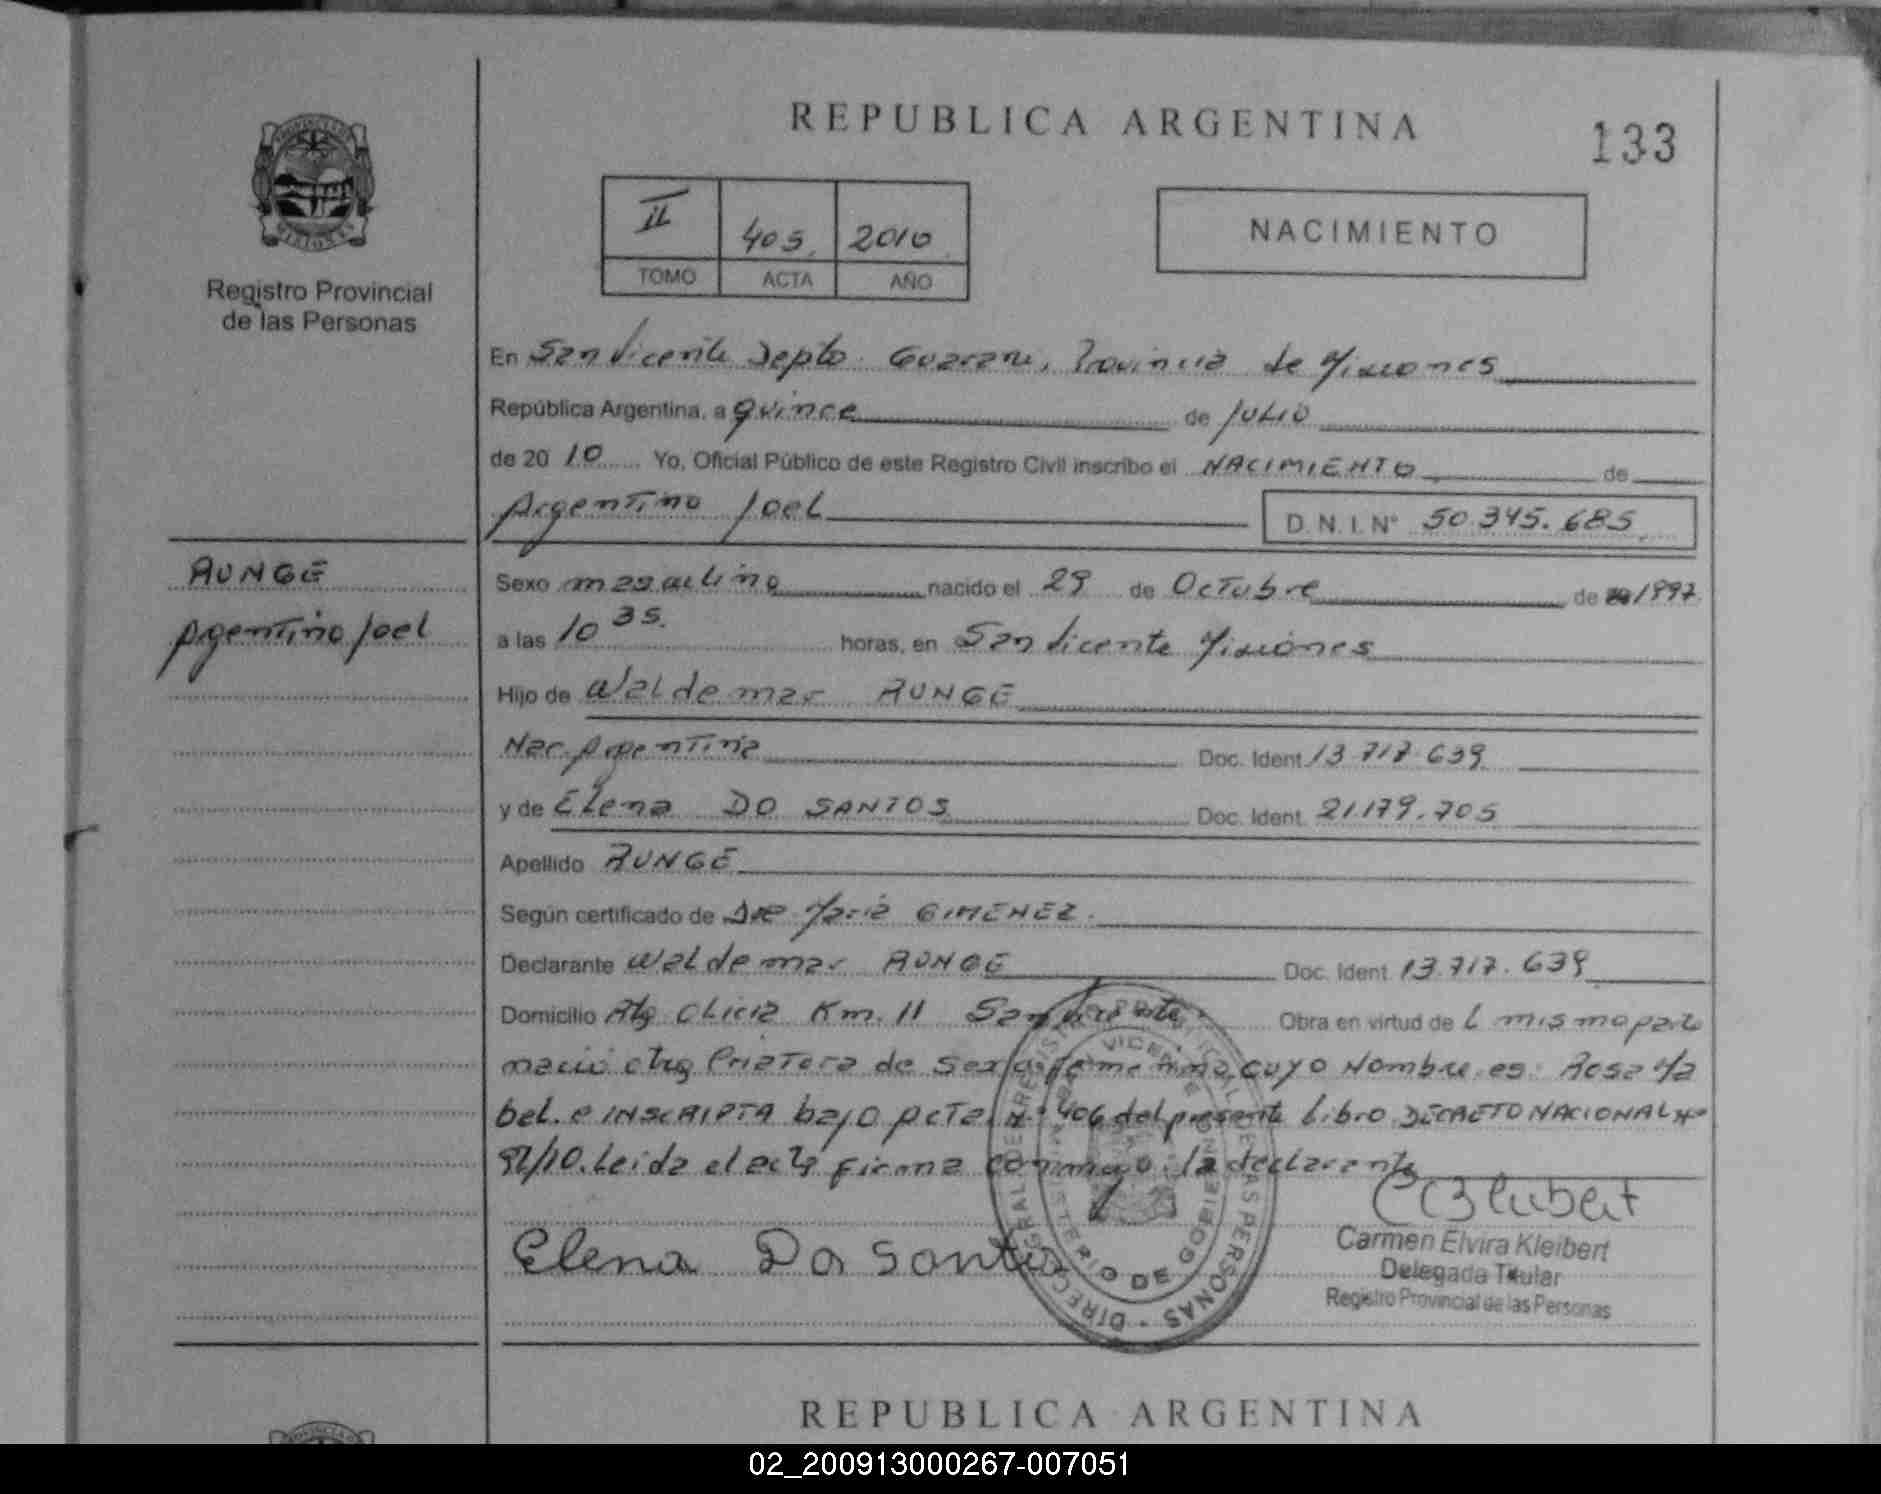 REPUBLICA ARGENTINA
133
PROVINCIA DE MISIONES
Registro Provincial
de las Personas
II 405. 2010
TOMO ACTA AÑO
NACIMIENTO
En San Vicente Depto. Guarani, Provincia de Misiones
República Argentina, a quince de JULIO
de 20 10 Yo, Oficial Público de este Registro Civil inscribo el NACIMIENTO de
Argentino Joel D.N.I.N° 50.345.685
RUNGE
Argentino Joel
Sexo masculino nacido el 29 de Octubre de 1997
a las 10 35. horas, en San Vicente Misiones
Hijo de Waldemar RUNGE
Nac. Argentina Doc. Ident. 13.717.639
y de Elena DO SANTOS Doc. Ident. 21.179.705
Apellido RUNGE
Según certificado de María GIMENEZ.
Declarante Waldemar RUNGE Doc. Ident. 13.717.639
Domicilio Alicia Km. 11 San Vicente Obra en virtud de L mismo parto
nació otra Criatura de sexo femenino cuyo Nombre es: Rosa Ma
bel. e INSCRIPTA bajo Acta N° 406 del presente Libro. DECRETO NACIONAL N°
92/10. Leida el acta firma conmigo la declarante
Elena Do Santos
Carmen Elvira Kleibert
Delegada Titular
Registro Provincial de las Personas
REPUBLICA ARGENTINA
02_200913000267-007051